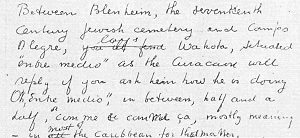 Between Blenheim, the seventeenth
Century Jewish cemetery and Campo
Alegre, Capt's
you all find Wakota, situated
"mbre medio" as the Curacaoan will
reply if you ask heim how he is doing
Oh, mbre medio", in between, half and a
half, "comme ci comme ça, mostly meaning
most
in all the Caribbean for that matter,